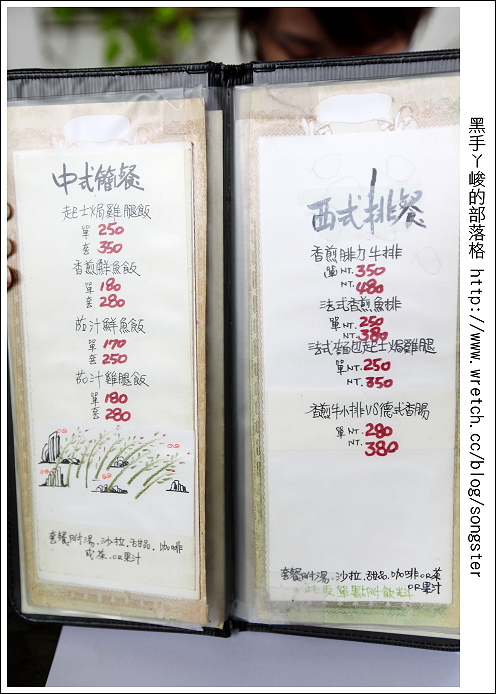 中式簡餐
起士焗雞腿飯
單 250
套 350
香煎鮮魚飯
單 180
套 280
茄汁鮮魚飯
單 170
套 250
茄汁雞腿飯
單 180
套 280
套餐附湯.沙拉.甜品.咖啡
或茶.OR果汁
西式排餐
香煎腓力牛排
單NT. 350
NT. 480
法式香煎魚排
單NT. 250
NT. 380
法式麵包起士焗雞腿
單NT. 250
NT. 350
香煎牛小排VS德式香腸
單NT. 280
NT. 380
套餐附湯.沙拉.甜品.咖啡OR茶
OR果汁
單點附飲料
黑手ㄚ峻的部落格 http://www.wretch.cc/blog/songster